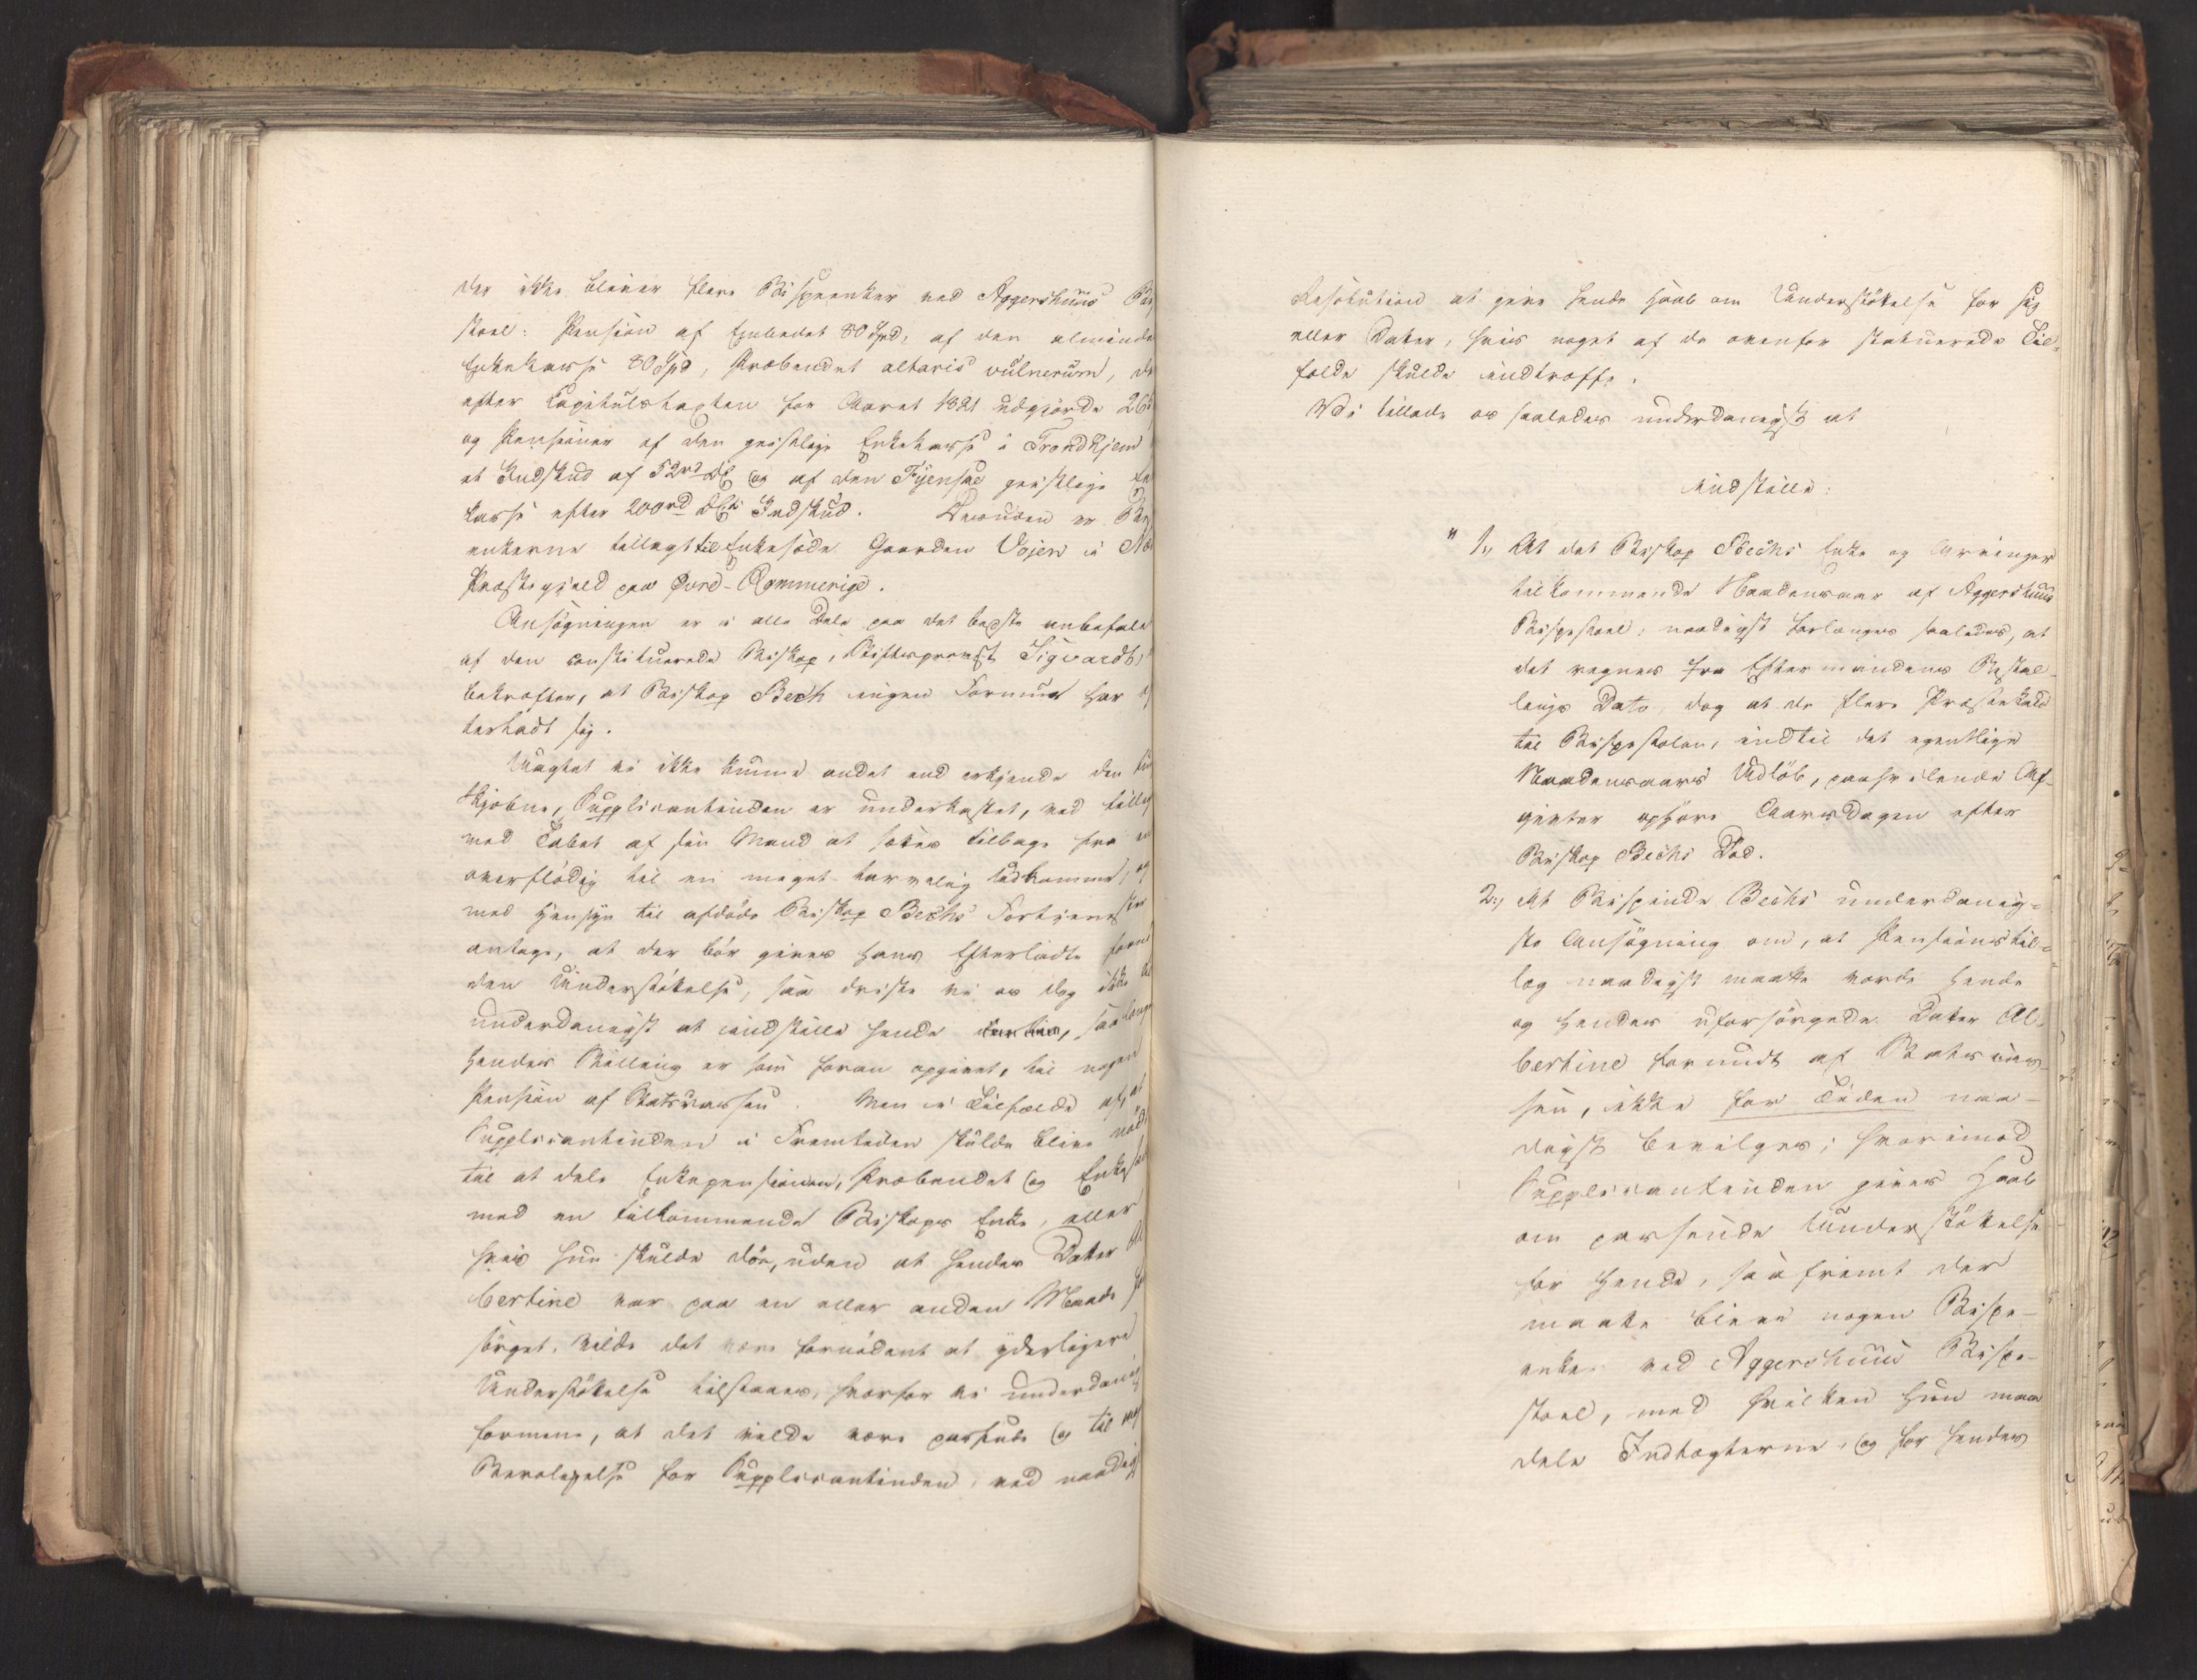 der ikke bliver flere Bispeenker ved Aggershuus Bis
stoel: Pension af Embedet 80 Spd, af den alminde
Enkekasse 80 Spd, Præbendet altaris vulnerum, de
efter Capitulstaxten for Aaret 1821 udgjorde 26
og Pensioner af den geistlige Enkekasse i Trondhjem
et Indskud af 52 rd og af den Fyenske geistlige En
kasse efter 200 rd Indskud. Desuden er Bis
enkerne tillagt til Enkesæde Gaarden Vojen i Næs
Præstegjeld paa Øvre-Rommerige.
Ansøgningen er i alle Dele paa det bedste anbefalet
af den constituerede Biskop, Stiftsprovst Sigvardt,
bekræfter, at Biskop Bech ingen Formue har
terladt sig.
Uagtet vi ikke kunne andet end erkjende den
Skjebne, Supplicantinden er underkastet, ved tillige
med Tabet af sin Mand at sættes tilbage fra en
overflødig til en meget tarvelig Udkomme, og
med Hensyn til afdøde Biskop Bechs Fortjenester
antage, at der bør gives hans Efterladte fornø
den Understøttelse, saa driste vi os dog ikke
underdanigst at indstille hende saa længe
hendes Stilling er som foran opgivet, til nogen
Pension af Statscassen. Men i Tilfælde af, at
Supplicantinden i Fremtiden skulde blive nød
til at dele Enkepensionen, Præbendet og Enkesæ
med en tilkommende Biskops Enke, eller
hvis hun skulde døe, uden at hendes Datter Al
bertine var paa en eller anden Maade for
sørget, vilde det være fornødent at yderligere
Understøttelse tilstaaes, hvorfor vi underdanig
formene, at det vilde være passende og til
Beroligelse for Supplicantinden, ved naadig
Resolution at give hende Haab om Understøttelse for sig
eller Datter, hvis noget af de ovenfor statuerede Til-
fælde skulde indtræffe.
Vi tillade os saaledes underdanigst at
indstille:
" 1., At det Biskop Bechs Enke og Arvinger
tilkommende Naadensaar af Aggershuus
Bispestoel, naadigst forlænges saaledes, at
det regnes fra Eftermandens Bestal-
lings Dato, dog at de flere Præstekald
til Bispestolen, indtil det egentlige
Naadensaars Udløb, paahvilende Af-
givter ophøre Aarsdagen efter
Biskop Bechs Død.
2., At Bispinde Bechs underdanig-
ste Ansøgning om, at Pensionstil-
læg naadigst maatte vorde hende
og hendes uforsørgede Datter Al-
bertine forundt af Statscas-
sen, ikke for Tiden naa-
digst bevilges; hvorimod
Supplicantinden gives Haab
om passende Understøttelse
for hende, saafremt der
maatte blive nogen Bispe-
enke ved Aggershuus Bispe-
stoel, med hvilken hun maa
dele Indtægterne, og for hendes